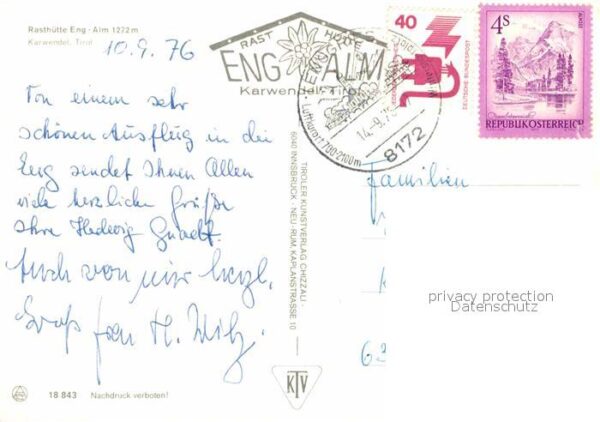 Rasthütte Eng - Alm 1272 m
Karwendel, Tirol
10.9.76
RAST HÜTTE
ENG ALM
Karwendel-Tirol
40
DEUTSCHE BUNDESPOST
4S
REPUBLIK ÖSTERREICH
14.-9.76
8172
Luftkurort 700-2100m
Von einem sehr
schönen Ausflug in die
Eng sendet Ihnen Allen
viele herzliche Grüße
Ihre Hedwig
Auch von mir herzl.
Gruß Frau H.
Familien
TIROLER KUNSTVERLAG CHIZZALI
6040 INNSBRUCK - NEU-RUM, KAPLANSTRASSE 10
privacy protection
Datenschutz
KTV
18 843 Nachdruck verboten!